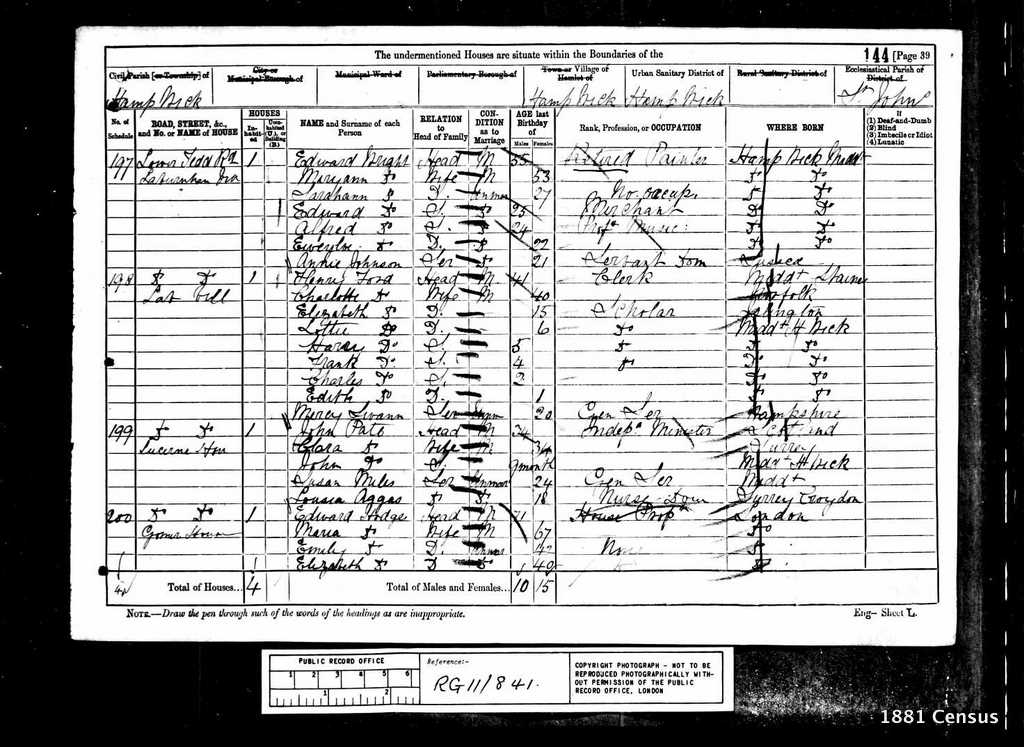 The undermentioned Houses are situate within the Boundaries of the
144 [Page 39
Civil Parish [or Township] of
City or Municipal Borough of
Municipal Ward of
Parliamentary Borough of
Town or Village of Hamlet of
Urban Sanitary District of
Rural Sanitary District of
Ecclesiastical Parish of District of
Hamp Wick
Hamp Wick
Hamp Wick
St John's
No. of Schedule
ROAD, STREET, &c., and No. or NAME of HOUSE
HOUSES
Inhabited
Uninhabited (U.), or Building (B.)
NAME and Surname of each Person
RELATION to Head of Family
CONDITION as to Marriage
AGE last Birthday of
Males
Females
Rank, Profession, or OCCUPATION
WHERE BORN
If
(1) Deaf-and-Dumb
(2) Blind
(3) Imbecile or Idiot
(4) Lunatic
197 Lower Tedd Rd 1 Edward Wright Head M 55 Retired Painter Hamp Wick Middx
Maryann Do Wife M 53 Do Do
Sarahann Do D. Unmar 27 No occup. Do Do
Edward Do S. Do 25 Merchant Do Do
Alfred Do S. Do 24 Profr Music Do Do
Do D. Do 22 Do Do
Annie Johnson Ser Do 21 Servant Dom Sussex
198 Do Do 1 Henry Ford Head M 41 Clerk Middx Staines
Charlotte Do Wife M 40 Norfolk
Elizabeth Do D. 15 Scholar Islington
Lottie Do D. 6 Do Middx H Wick
Harry Do S. 5 Do Do Do
Frank Do S. 4 Do Do Do
Charles Do S. 2 Do Do
Edith Do D. 1 Do Do
Mercy Swann Ser Unm 20 Gen Ser Hampshire
199 Do Do 1 John Pate Head M 34 Indepn Minister Scotland
Lucerne Hou Clara Do Wife M 34 Surrey
John Do S. 9 month Middx H Wick
Susan Miles Ser Unmar 24 Gen Ser Middx
Lousia Aggas Do Do 18 Nurse Dom Surrey Croydon
200 Do Do 1 Edward Hodge Head M 71 House Propr London
Maria Do Wife M 67 Do
Emily Do D. Unmar 42 None Do
Elizabeth Do D. Do 40 Do
4 Total of Houses... 4 Total of Males and Females... 10 15
NOTE.—Draw the pen through such of the words of the headings as are inappropriate.
Eng— Sheet L.
PUBLIC RECORD OFFICE
1 2 3 4 5 6
1 2
Reference:-
RG 11/841.
COPYRIGHT PHOTOGRAPH - NOT TO BE
REPRODUCED PHOTOGRAPHICALLY WITH-
OUT PERMISSION OF THE PUBLIC
RECORD OFFICE, LONDON
1881 Census